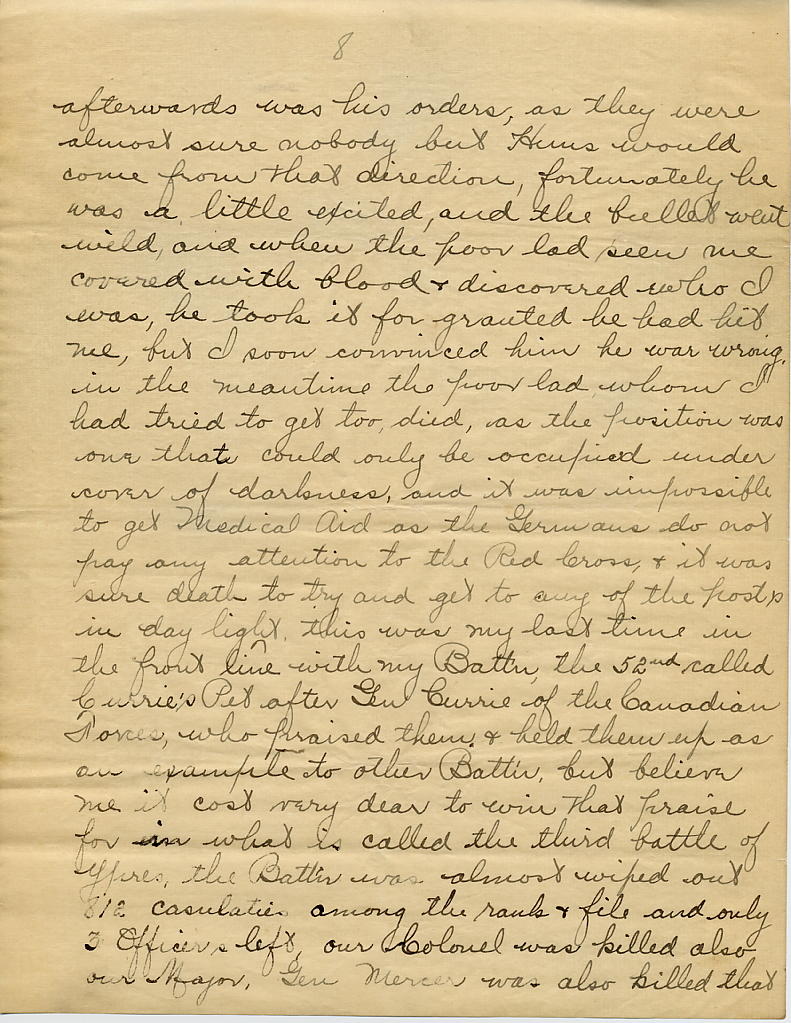 8
afterwards was his orders, as they were
almost sure nobody but Huns would
come from that direction, fortunately he
was a little excited, and the bullet went
wild, and when the poor lad seen me
covered with blood & discovered who I
was, he took it for granted he had hit
me, but I soon convinced him he was wrong.
in the meantime the poor lad whom I
had tried to get too, died, as the position was
one that could only be occupied under
cover of darkness, and it was impossible
to get Medical Aid as the Germans do not
pay any attention to the Red Cross, & it was
sure death to try and get to any of the posts
in day light. this was my last time in
the front line with my Batt'n, the 52nd called
Currie's Pet after Gen Currie of the Canadian
Forces, who praised them & held them up as
an example to other Batt'n, but believe
me it cost very dear to win that praise
for in what is called the third battle of
Ypres, the Batt'n was almost wiped out
812 casulaties among the rank & file and only
3 Officers left, our Colonel was killed also
our Major, Gen Mercer was also killed that